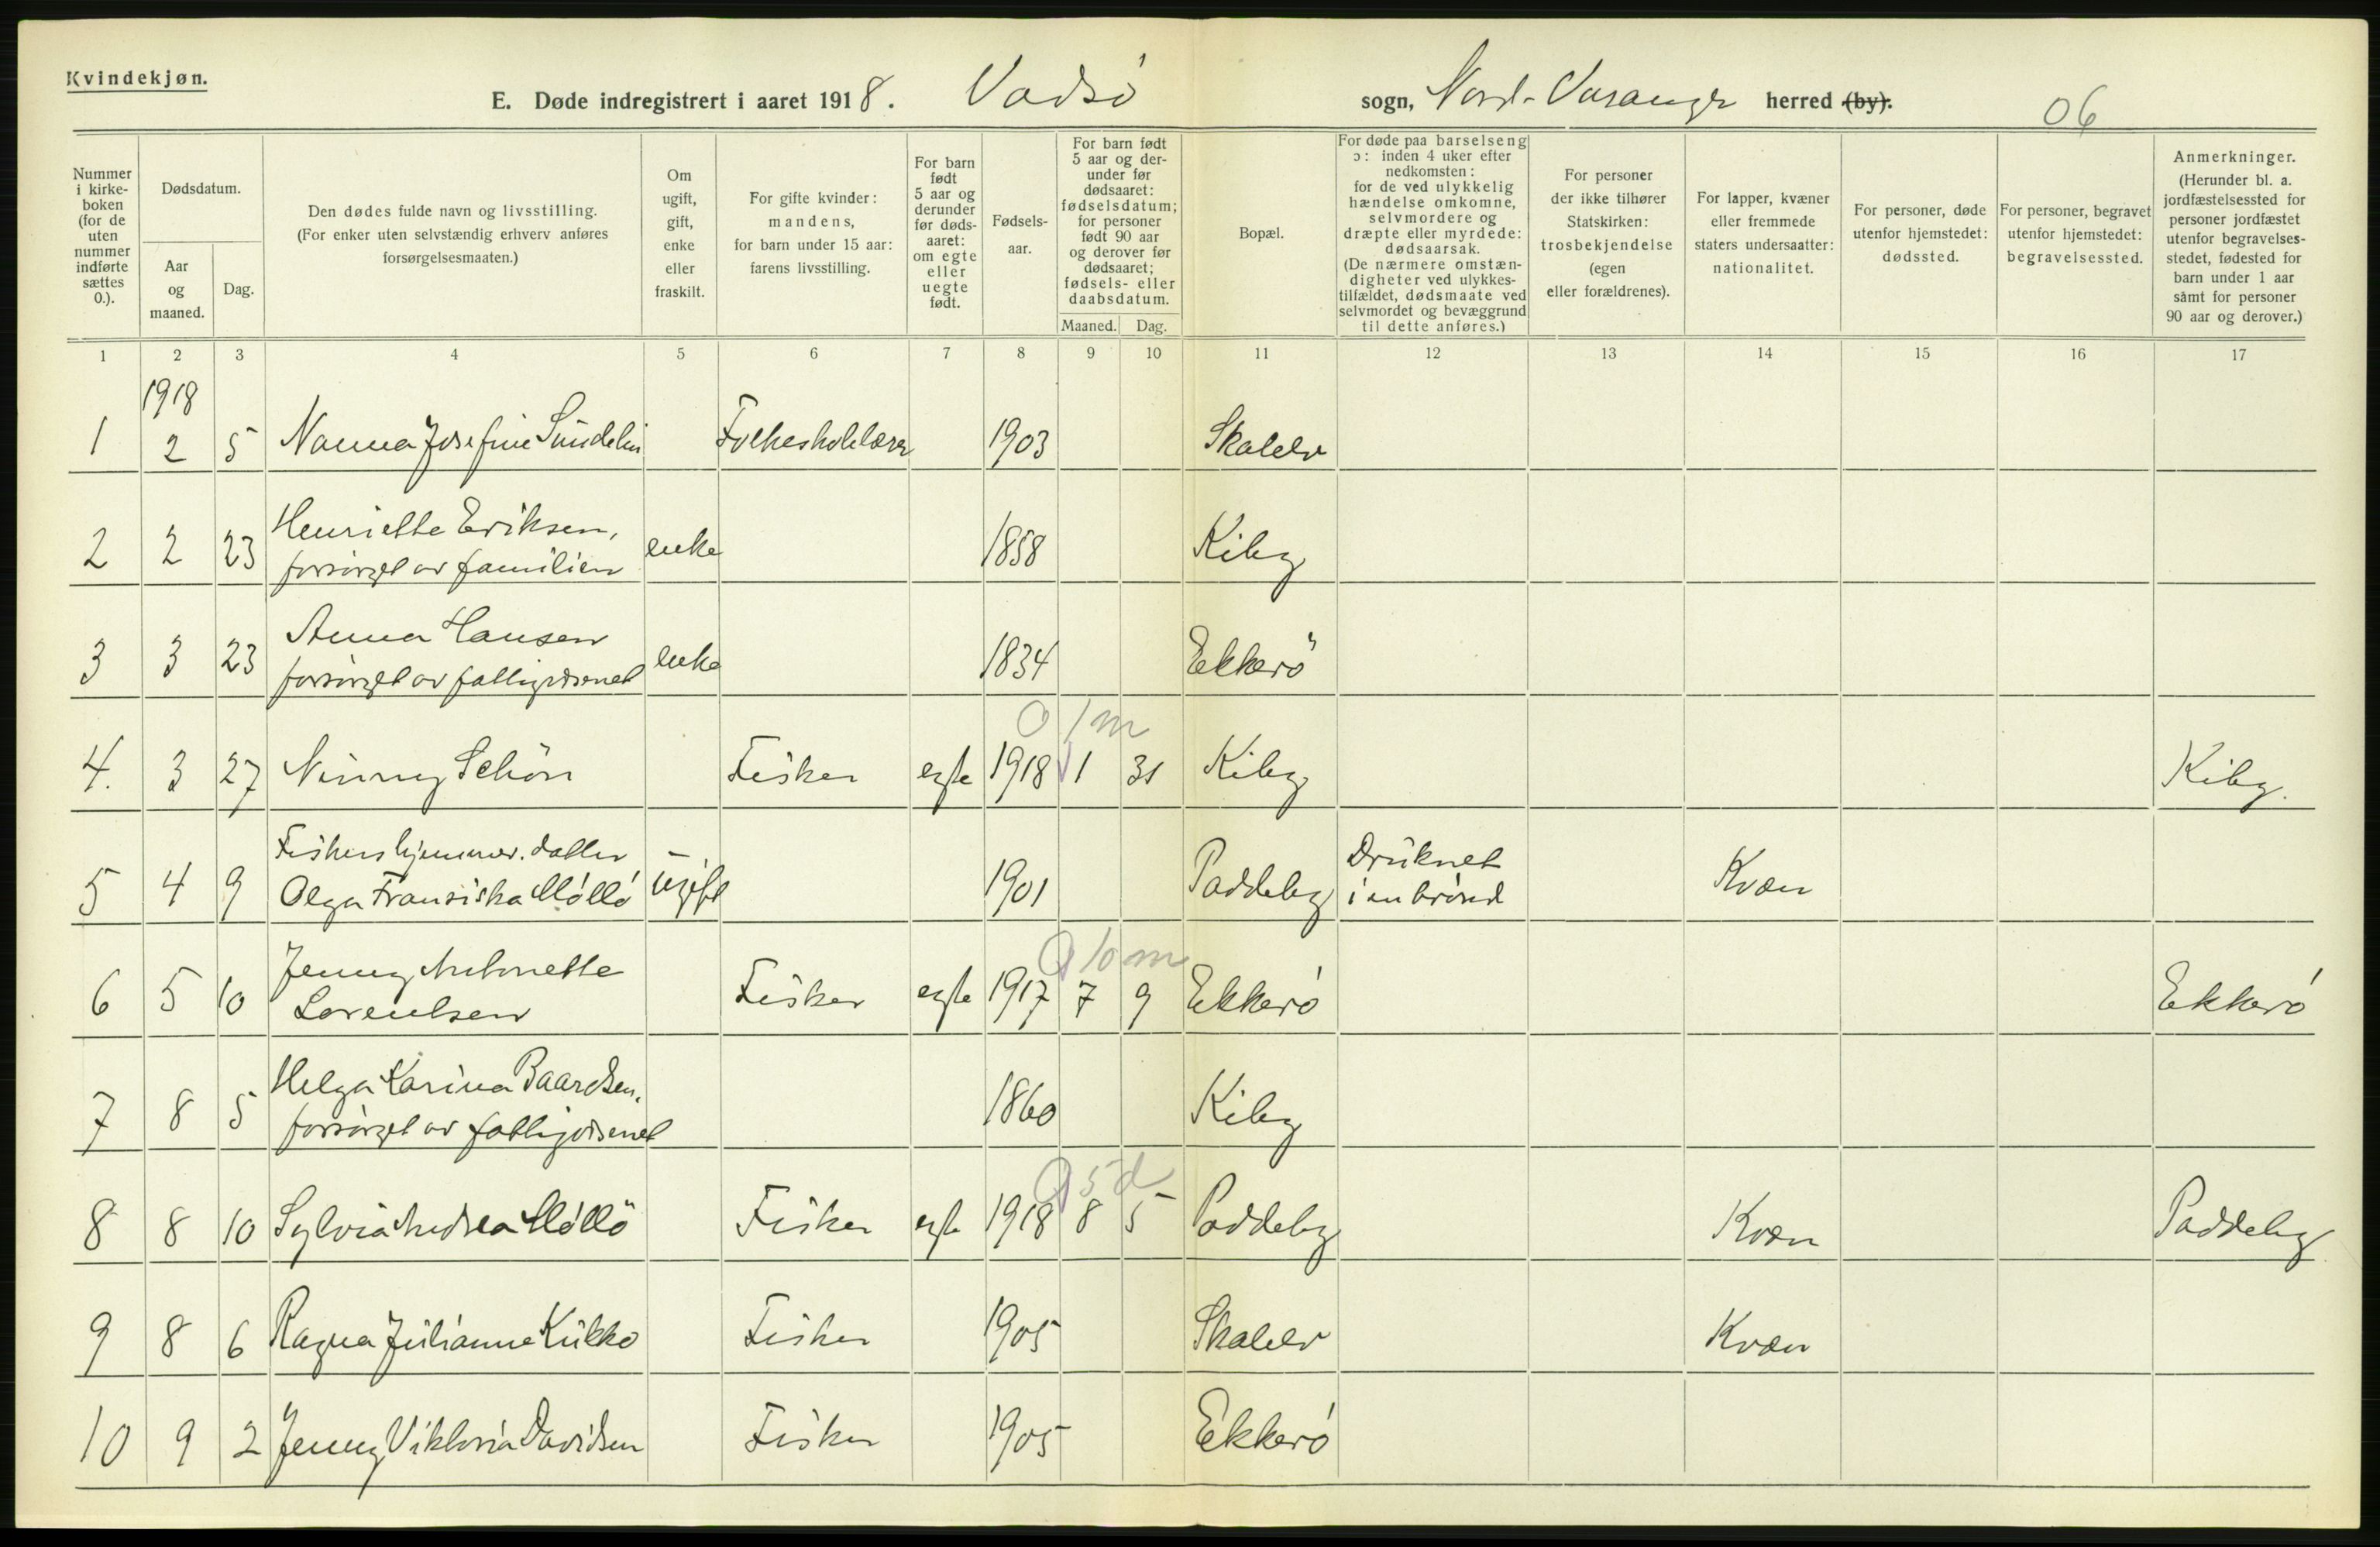 Kvindekjøn.
E. Døde indregistrert i aaret 1918. Vadsö sogn, Nord-Varanger herred (by).
06
Nummer i kirke- boken (for de uten nummer indførte sættes 0.).
Dødsdatum.
Aar og maaned.
Dag.
Den dødes fulde navn og livsstilling.
(For enker uten selvstændig erhverv anføres
forsørgelsesmaaten.)
Om ugift, gift, enke eller fraskilt.
For gifte kvinder: mandens, for barn under 15 aar: farens livsstilling.
For barn født 5 aar og derunder før døds- aaret: om egte eller uegte født.
Fødsels- aar.
For barn født 5 aar og der- under før dødsaaret: fødselsdatum; for personer født 90 aar og derover før dødsaaret; fødsels- eller daabsdatum.
Maaned. Dag.
Bopæl.
For døde paa barselseng ɔ: inden 4 uker efter nedkomsten: for de ved ulykkelig hændelse omkomne, selvmordere og dræpte eller myrdede: dødsaarsak. (De nærmere omstæn- digheter ved ulykkes- tilfældet, dødsmaate ved selvmordet og bevæggrund til dette anføres.)
For personer der ikke tilhører Statskirken: trosbekjendelse (egen eller forældrenes).
For lapper, kvæner eller fremmede staters undersaatter: nationalitet.
For personer, døde utenfor hjemstedet: dødssted.
For personer, begravet utenfor hjemstedet: begravelsessted.
Anmerkninger. (Herunder bl. a. jordfæstelsessted for personer jordfæstet utenfor begravelses- stedet, fødested for barn under 1 aar samt for personer 90 aar og derover.)
1 2 3 4 5 6 7 8 9 10 11 12 13 14 15 16 17
1918
1 2 5 Nanna Josefine Sundelin Folkeskolelærer 1903 Skalelv
2 2 23 Henriette Eriksen, enke 1858 Kiby
forsörget av familien
3 3 23 Anna Hansen enke 1834 Ekkerö
forsörget av fattigvæsenet
0 1 m
4. 3 27 Ninny Schön Fisker egte 1918 1 31 Kiby Kiby.
Fiskers hjemmev. datter Druknet
5 4 9 Olga Fransiska Möllö ugift 1901 Paddeby i en brönd Kvæn
0 10 m
6 5 10 Jenny Antonette Fisker egte 1917 7 9 Ekkerö Ekkerö
Lorentsen
7 8 5 Helga Karina Baardsen, 1860 Kiby
forsörget av fattigvæsenet
0 5 d
8 8 10 Sylvia Andrea Möllö Fisker egte 1918 8 5 Paddeby Kvæn Paddeby
9 8 6 Ragna Julianne Kukko Fisker 1905 Skalelv Kvæn
10 9 2 Jenny Viktoria Davidsen Fisker 1905 Ekkerö